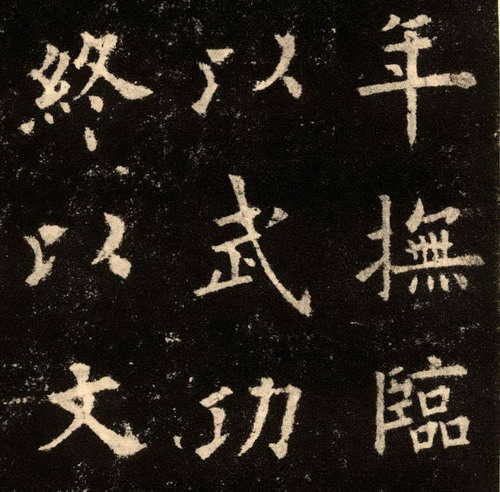 年撫臨
以武功
終以文